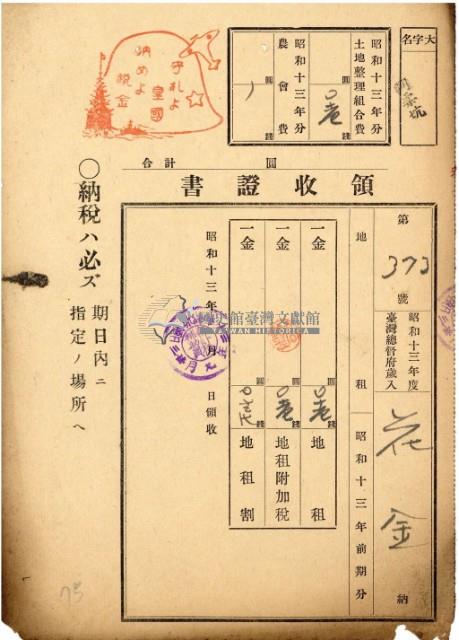 大字名
昭和十三年分
土地整理組合費
圓
錢
昭和十三年分
農會費
圓
錢
守れよ
皇國
納めよ
税金
合計 圓
領收證書
第 372 號
昭和十三年度
臺灣總督府歲入
金
納
地租
昭和十三年前期分
一金
圓
錢
地租
一金
圓
錢
地租附加稅
一金
圓
錢
地租割
昭和十三年 月 日領收
〇納稅ハ必ズ
期日內ニ
指定ノ場所ヘ
國史館臺灣文獻館
TAIWAN HISTORICA